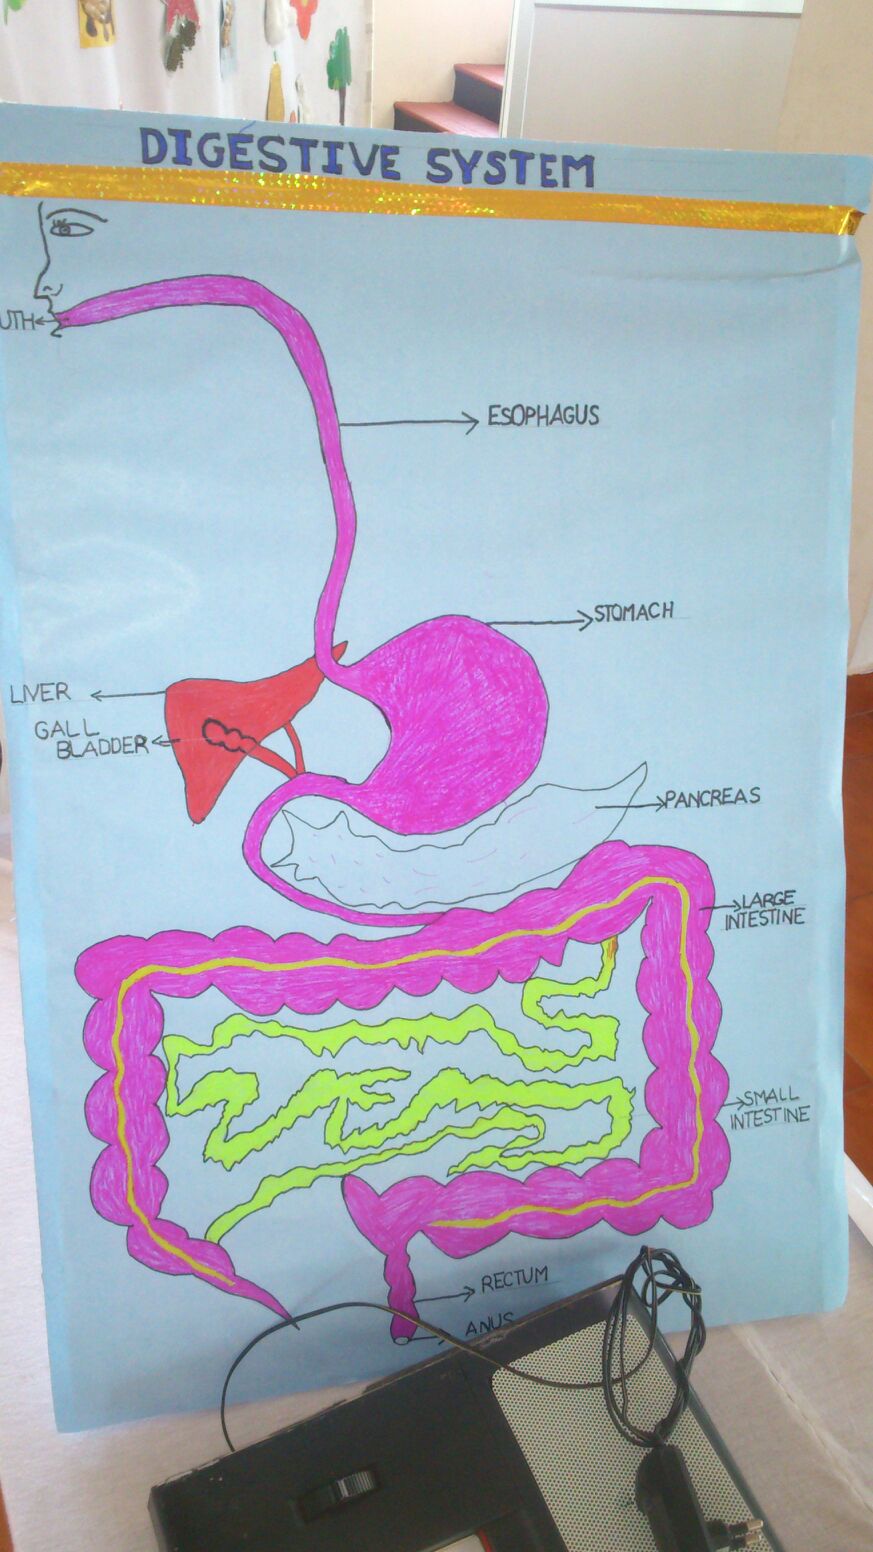 DIGESTIVE SYSTEM
UTH
ESOPHAGUS
STOMACH
LIVER
GALL
BLADDER
PANCREAS
LARGE
INTESTINE
SMALL
INTESTINE
RECTUM
ANUS